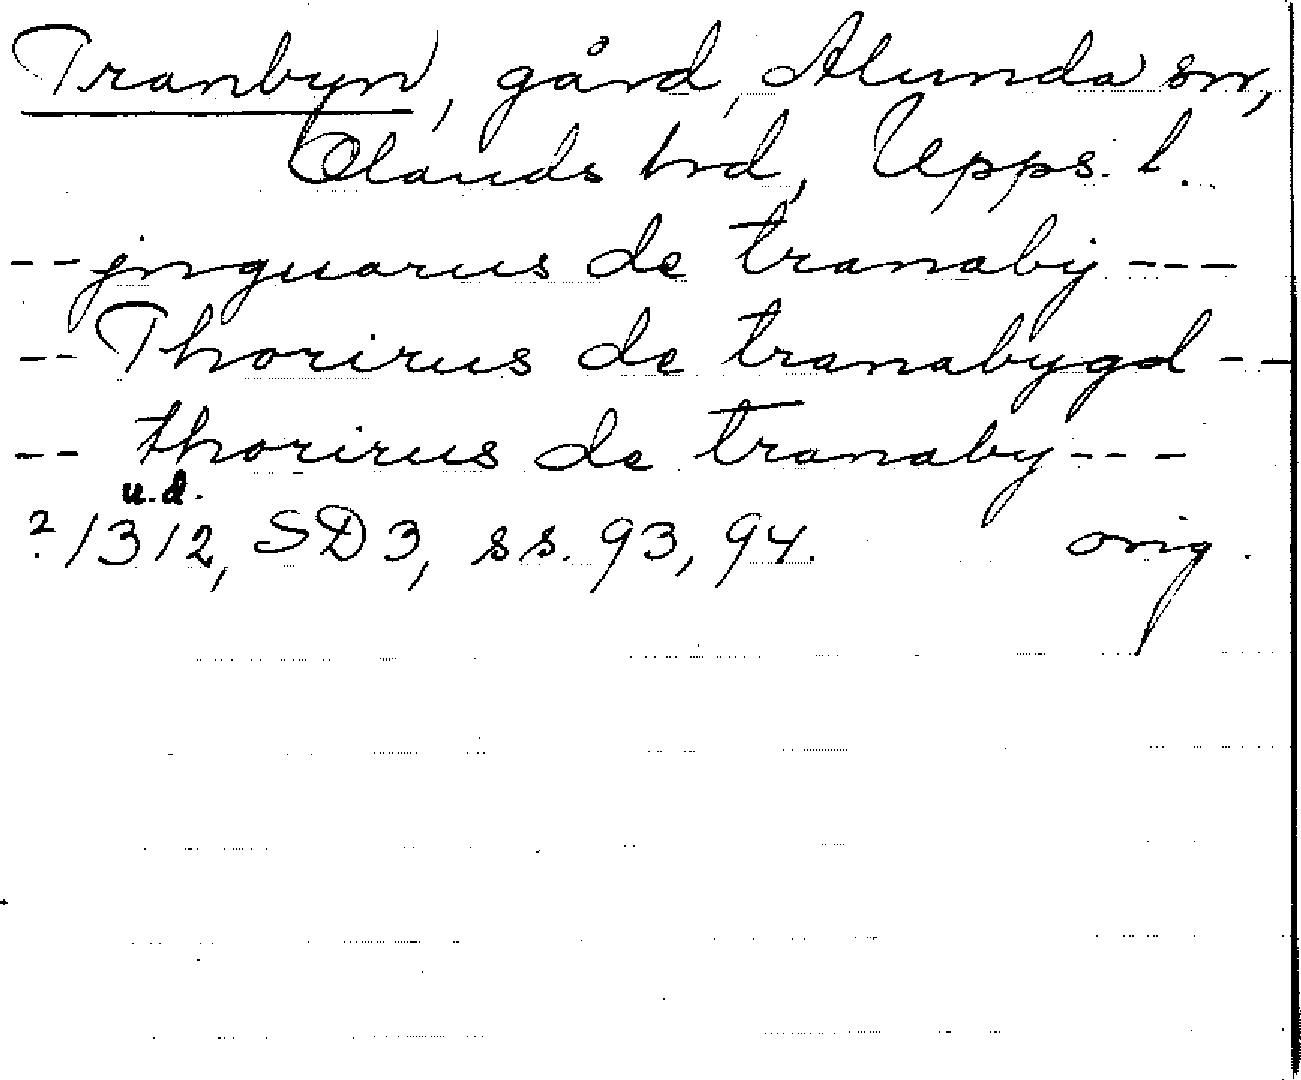 Tranbyn, gård, Alunda sn,
Olands hd, Upps. l.
-- jnguarus de tranaby ---
-- Thorirus de tranabygd --
-- thorirus de tranaby ---
u.d.
?/1312, SD 3, ss. 93, 94. orig.